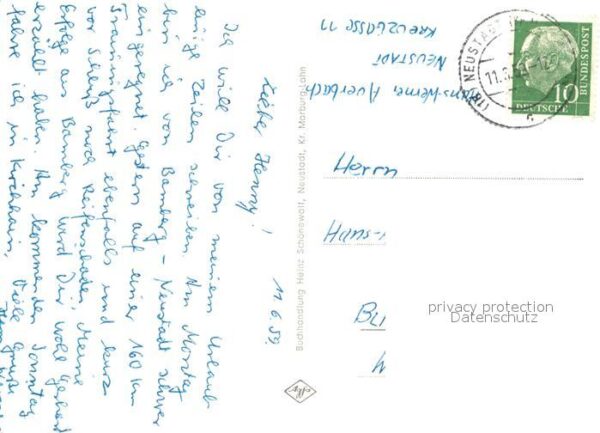 11.6.59.
Lieber Henny!
Ich will Dir von meinem Urlaub
einige Zeilen schreiben. Am Montag
bin ich von Bamberg – Neustadt schwer
eingeregnet. Gestern auf einer 160 km
Trainingsfahrt ebenfalls und kurz
vor Schluß noch Reifenschaden. Meine
Erfolge aus Bamberg wird Dir wohl Gerhard
erzählt haben. Am kommenden Sonntag
fahre ich in Kirchhain. Viele Grüße
Buchhandlung Heinz Schönewolf, Neustadt, Kr. Marburg/Lahn
Hans-Werner Auerbach
NEUSTADT
Kreuzgasse 11
NEUSTADT
10
DEUTSCHE
BUNDESPOST
Herrn
Hans-
Bu
privacy protection
Datenschutz